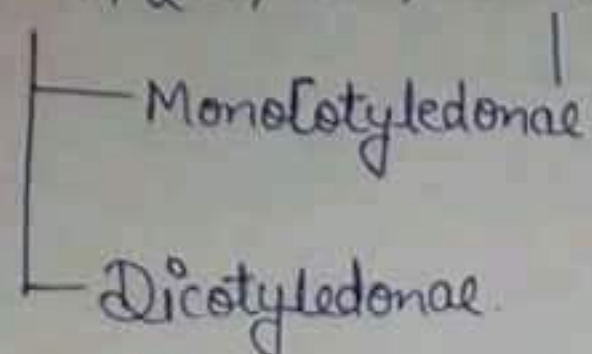 MonoCotyledonae
Dicotyledonae.